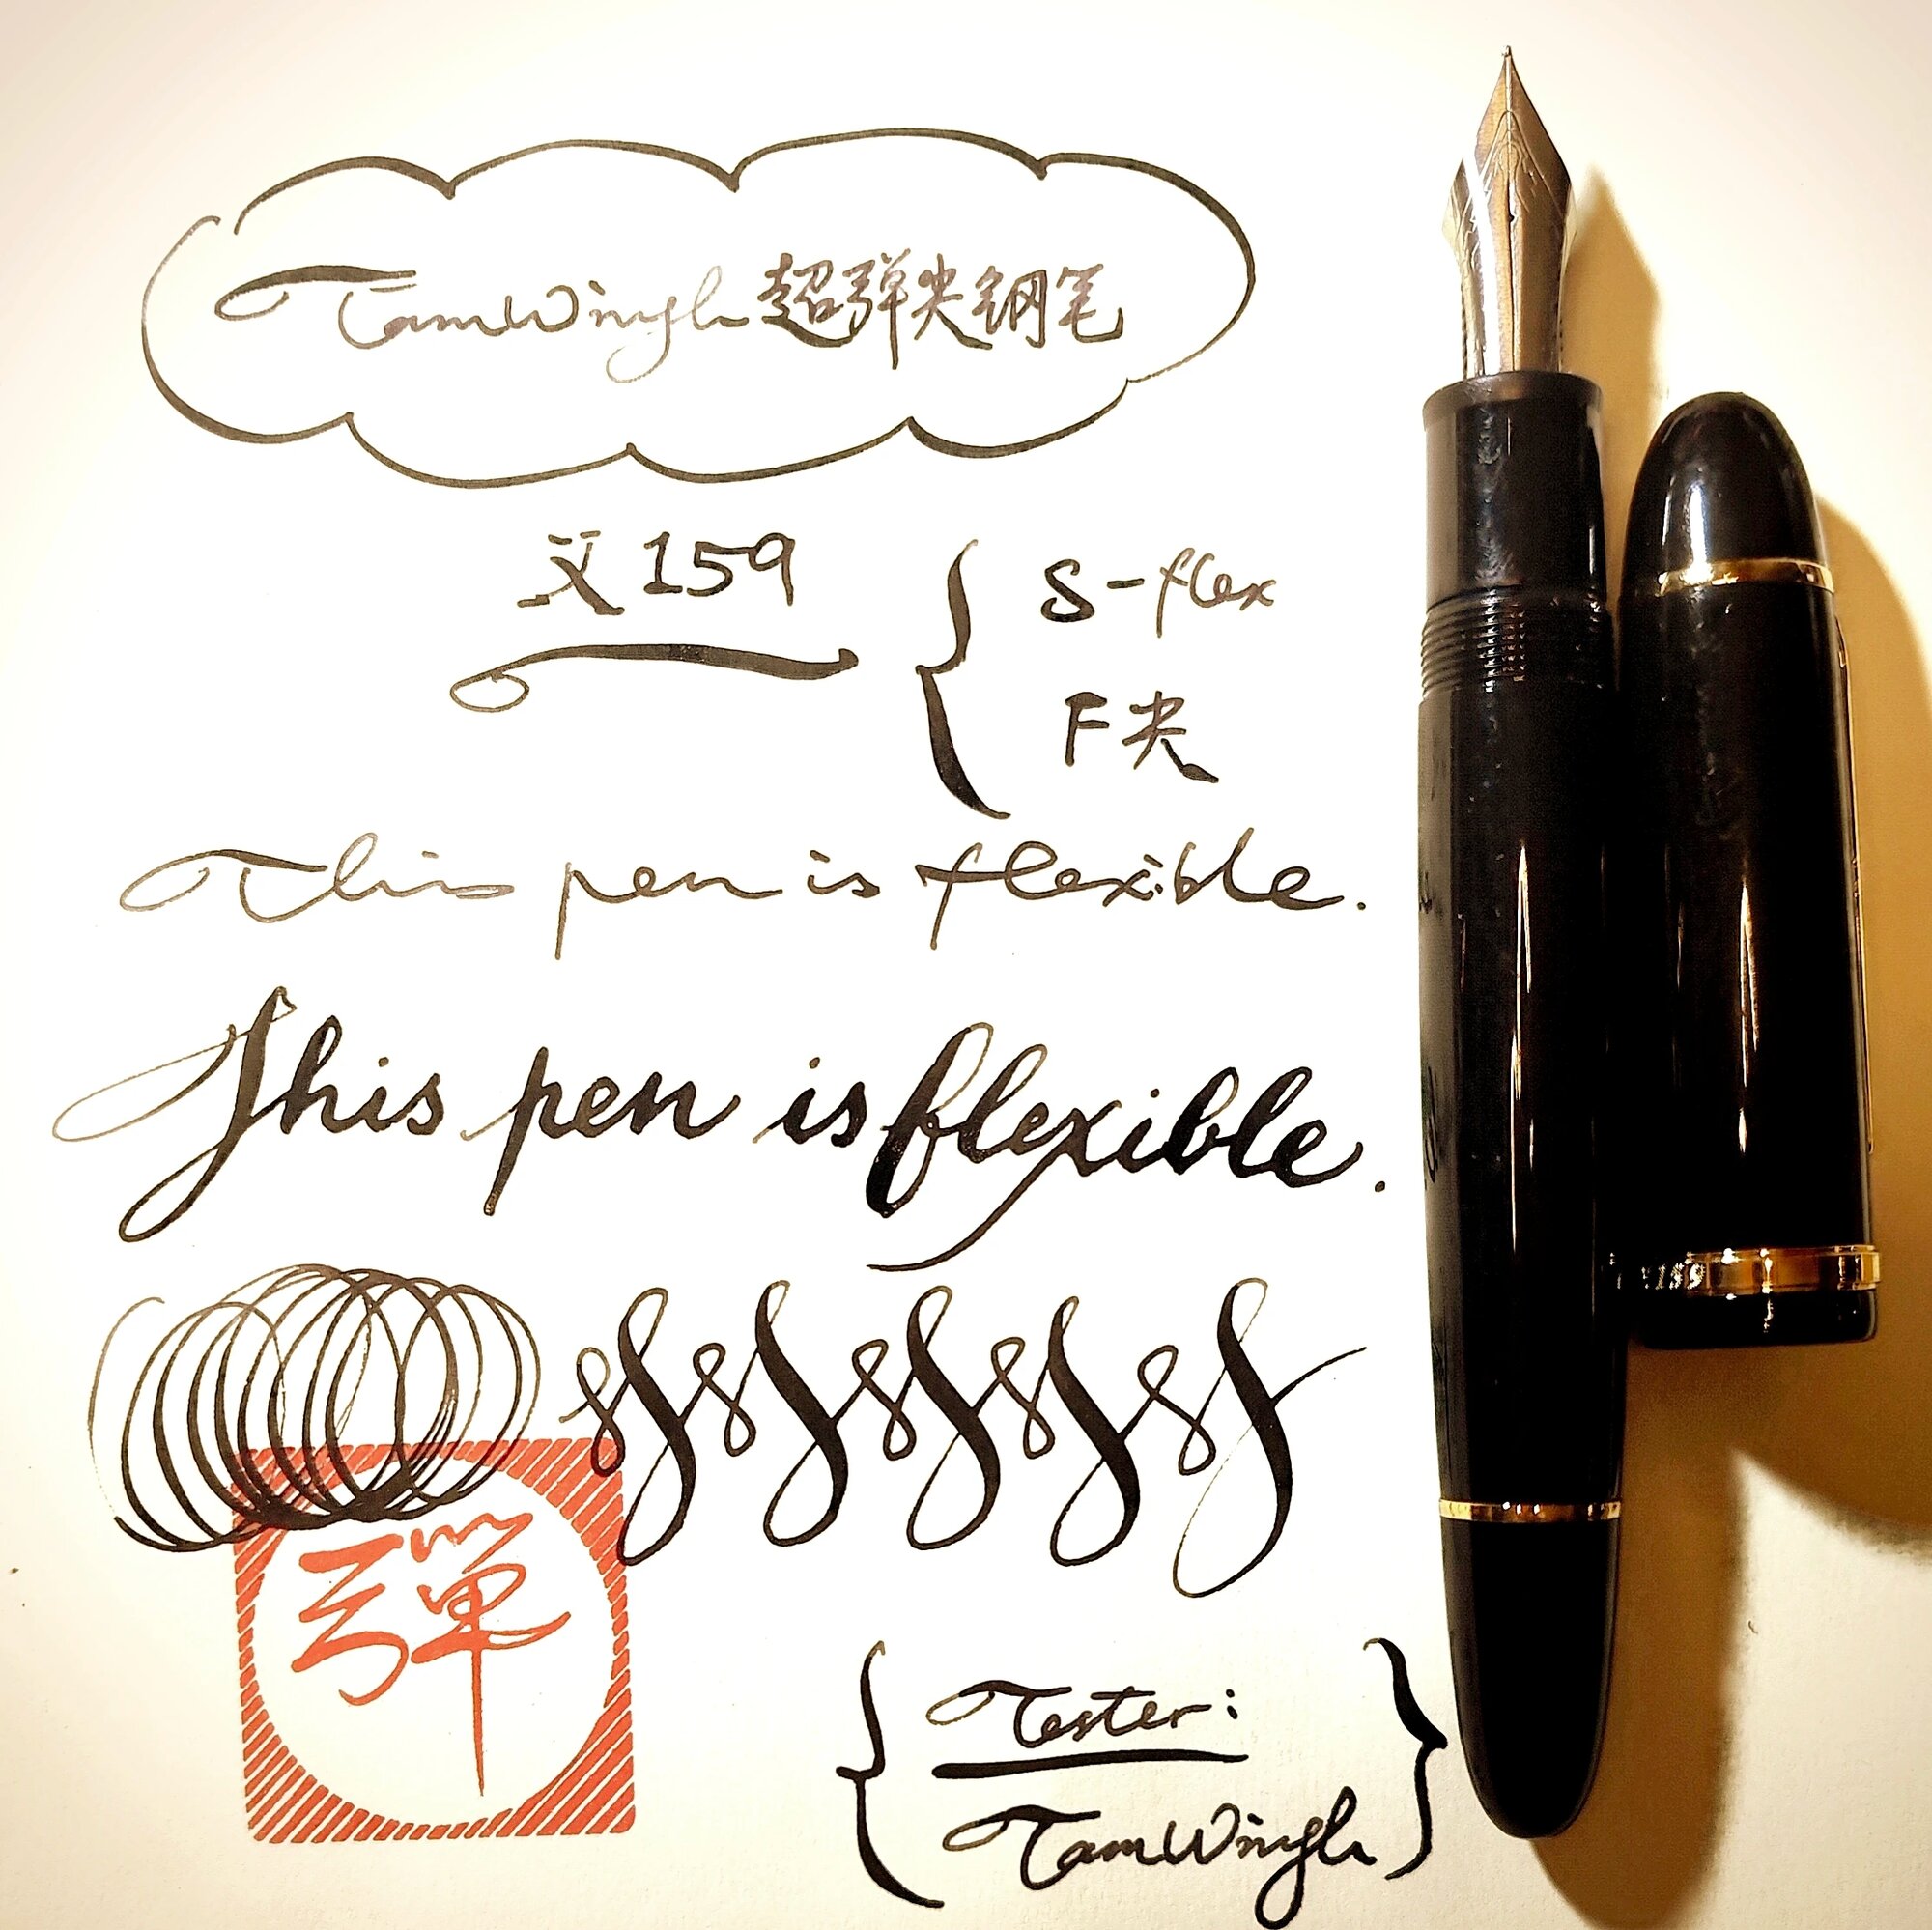 TamWingh超弹尖钢笔
X 159
S-flex
F尖
This pen is flexible.
This pen is flexible.
彈
Tester:
TamWingh
159